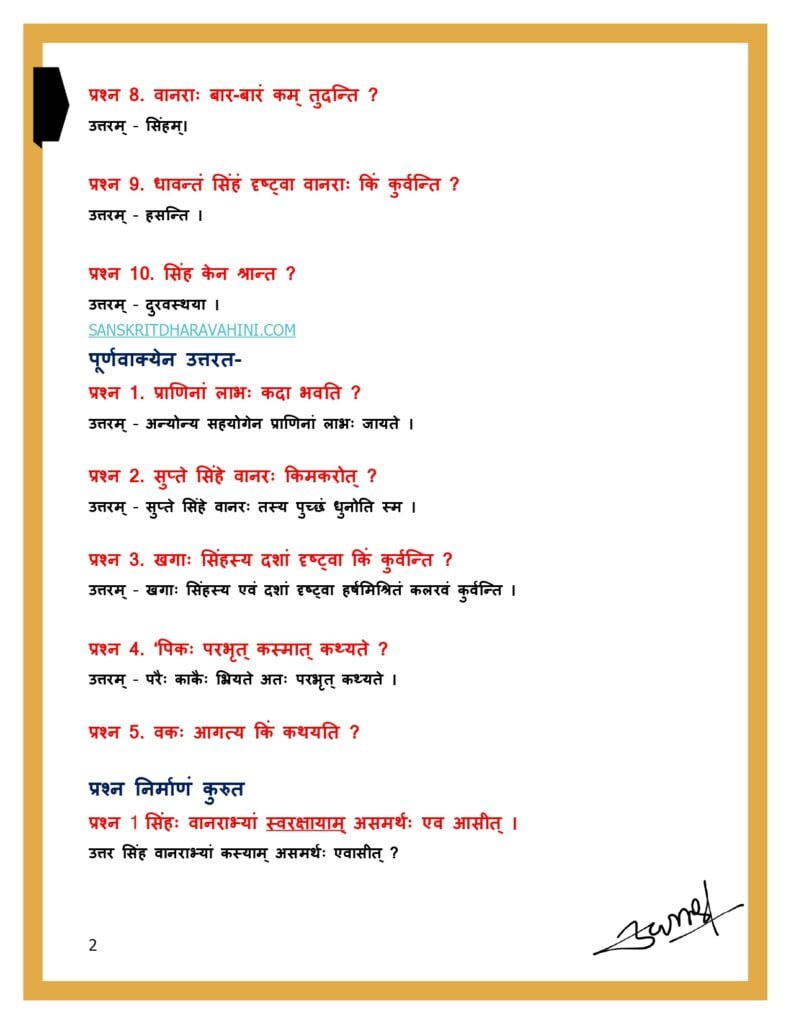 प्रश्न 8. वानराः बार-बारं कम् तुदन्ति ?
उत्तरम् - सिंहम्।
प्रश्न 9. धावन्तं सिंहं दृष्ट्वा वानराः किं कुर्वन्ति ?
उत्तरम् - हसन्ति ।
प्रश्न 10. सिंह केन श्रान्त ?
उत्तरम् - दुरवस्थया ।
SANSKRITDHARAVAHINI.COM
पूर्णवाक्येन उत्तरत-
प्रश्न 1. प्राणिनां लाभः कदा भवति ?
उत्तरम् - अन्योन्य सहयोगेन प्राणिनां लाभः जायते ।
प्रश्न 2. सुप्ते सिंहे वानरः किमकरोत् ?
उत्तरम् - सुप्ते सिंहे वानरः तस्य पुच्छं धुनोति स्म ।
प्रश्न 3. खगाः सिंहस्य दशां दृष्ट्वा किं कुर्वन्ति ?
उत्तरम् - खगाः सिंहस्य एवं दशां दृष्ट्वा हर्षमिश्रितं कलरवं कुर्वन्ति ।
प्रश्न 4. ‘पिकः परभृत् कस्मात् कथ्यते ?
उत्तरम् - परैः काकैः भ्रियते अतः परभृत् कथ्यते ।
प्रश्न 5. वकः आगत्य किं कथयति ?
प्रश्न निर्माणं कुरुत
प्रश्न 1 सिंहः वानराभ्यां स्वरक्षायाम् असमर्थः एव आसीत् ।
उत्तर सिंह वानराभ्यां कस्याम् असमर्थः एवासीत् ?
2